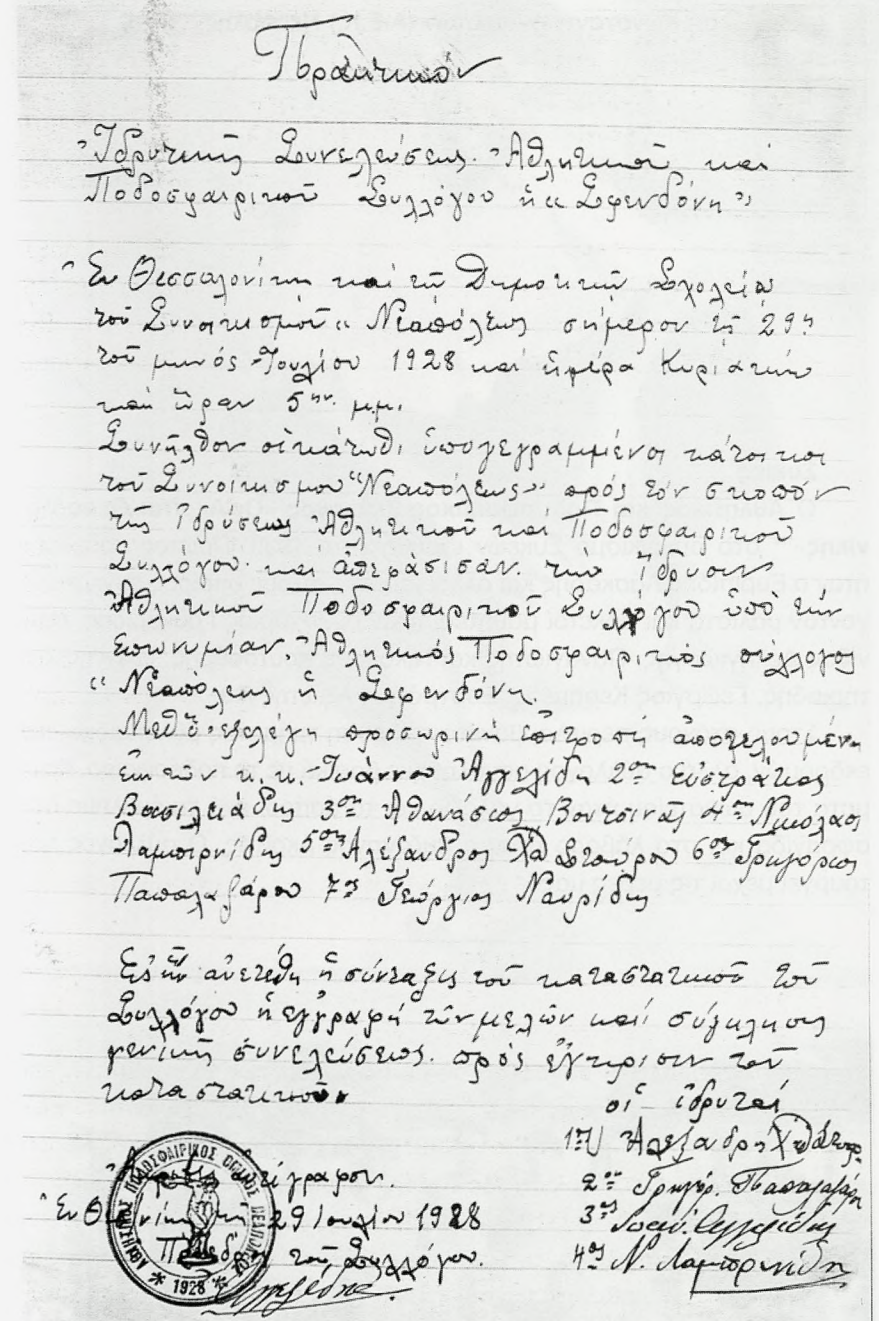 Πρακτικόν
Ἱδρυτικῆς Συνελεύσεως. Ἀθλητικοῦ καί
Ποδοσφαιρικοῦ Συλλόγου ἡ « Σφενδόνη »
Ἐν Θεσσαλονίκῃ καί τῷ Δημοτικῷ Σχολείῳ
τοῦ Συνοικισμοῦ « Νεαπόλεως σήμερον τῇ 29ῃ
τοῦ μηνός Ἰουλίου 1928 καί ἡμέρα Κυριακήν
καί ὥραν 5ην μ.μ.
Συνῆλθον οἱ κάτωθι ὑπογεγραμμένοι κάτοικοι
τοῦ Συνοικισμου "Νεαπόλεως" πρός τόν σκοπόν
τῆς ἱδρύσεως Ἀθλητικοῦ καί Ποδοσφαιρικοῦ
Συλλόγου καί ἀπεφάσισαν τήν ἵδρυσιν
Ἀθλητικοῦ Ποδοσφαιρικοῦ Συλλόγου ὑπό τήν
ἐπωνυμίαν. Ἀθλητικός Ποδοσφαιρικός σύλλογος
« Νεαπόλεως ἡ Σφενδόνη.
Μεθ' ὅ ἐξελέγη προσωρινή ἐπιτροπή ἀποτελουμένη
ἐκ τῶν κ.κ. Ἰωάννου Ἀγγελίδη 2ον Εὐστράτιος
Βασιλειάδης 3ον Ἀθανάσιος Βουτσινᾶς 4ον Νικόλαος
Λαμπρινίδης 5ον Ἀλέξανδρος Χ" Σταύρου 6ον Γρηγόριος
Παπαλαζάρου 7ος Γεώργιος Ναυρίδης
Εἰς ἥν ἀνετέθη ἡ σύνταξις τοῦ καταστατικοῦ τοῦ
Συλλόγου ἡ ἐγγραφή τῶν μελῶν καί σύγκλησις
γενικῆς συνελεύσεως. πρός ἔγκρισιν τοῦ
καταστατικοῦ.
οἱ ἱδρυταί
1ος Ἀλεξανδρ.
Ἀντίγραφον.
2ος Γρηγόρ. Παπαλαζάρ
Ἐν Θ νίκῃ τῇ 29 Ἰουλίου 1928
3ος Ἰωάν. Ἀγγελίδης
τοῦ Συλλόγου.
4ος Ν. Λαμπρινίδη
Ἀγγελίδης
ΑΘΛΗΤΙΚΟΣ ΠΟΔΟΣΦΑΙΡΙΚΟΣ ΟΜΙΛΟΣ
* 1928 *